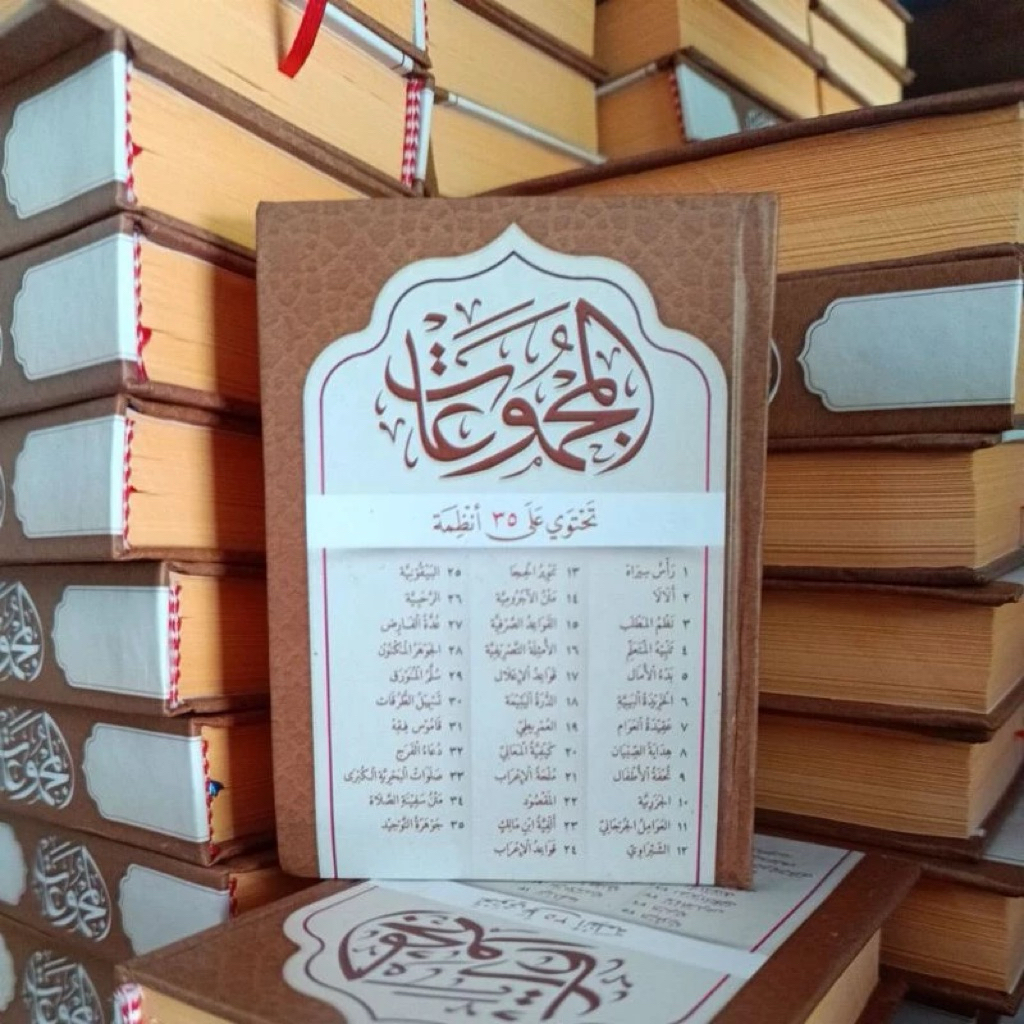 المجموعات
تَحْتَوِي عَلَى ٣٥ أَنْظِمَة
١ رَأْسْ سِيرَاهْ
٢ أَلَالَا
٣ نَظْمُ المَطْلَب
٤ تَنْبِيْهُ المُتَعَلِّم
٥ بَدْءُ الأَمَال
٦ الخَرِيْدَةُ البَهِيَّة
٧ عَقِيْدَةُ العَوَام
٨ هِدَايَةُ الصِّبْيَان
٩ تُحْفَةُ الأَطْفَال
١٠ الجَزَرِيَّة
١١ العَوَامِلُ الجُرْجَانِيْ
١٢ الشَّبْرَاوِيْ
١٣ تَنْوِيْرُ الحِجَا
١٤ مَتْنُ الآجُرُومِيَّة
١٥ القَوَاعِدُ الصَّرْفِيَّة
١٦ الأَمْثِلَةُ التَّصْرِيْفِيَّة
١٧ قَوَاعِدُ الإِعْلَال
١٨ الدُّرَّةُ اليَتِيْمَة
١٩ العِمْرِيْطِيْ
٢٠ كَيْفِيَّةُ المَعَانِيْ
٢١ مُلْحَةُ الإِعْرَاب
٢٢ المَقْصُوْد
٢٣ أَلْفِيَّةُ ابْنِ مَالِك
٢٤ قَوَاعِدُ الإِعْرَاب
٢٥ البَيْقُوْنِيَّة
٢٦ الرَّحَبِيَّة
٢٧ عُدَّةُ الفَارِض
٢٨ الجَوْهَرُ المَكْنُوْن
٢٩ سُلَّمُ المُنَوْرَق
٣٠ تَسْهِيْلُ الطُّرُقَات
٣١ قَامُوْس فِقِه
٣٢ دُعَاءُ الفَرَج
٣٣ صَلَوَاتُ البَحْرِيَّةِ الكُبْرَى
٣٤ مَتْنُ سَفِيْنَةِ الصَّلَاة
٣٥ جَوْهَرَةُ التَّوْحِيْد
المجموعات
المجموعات
المجموعات
المجموعات